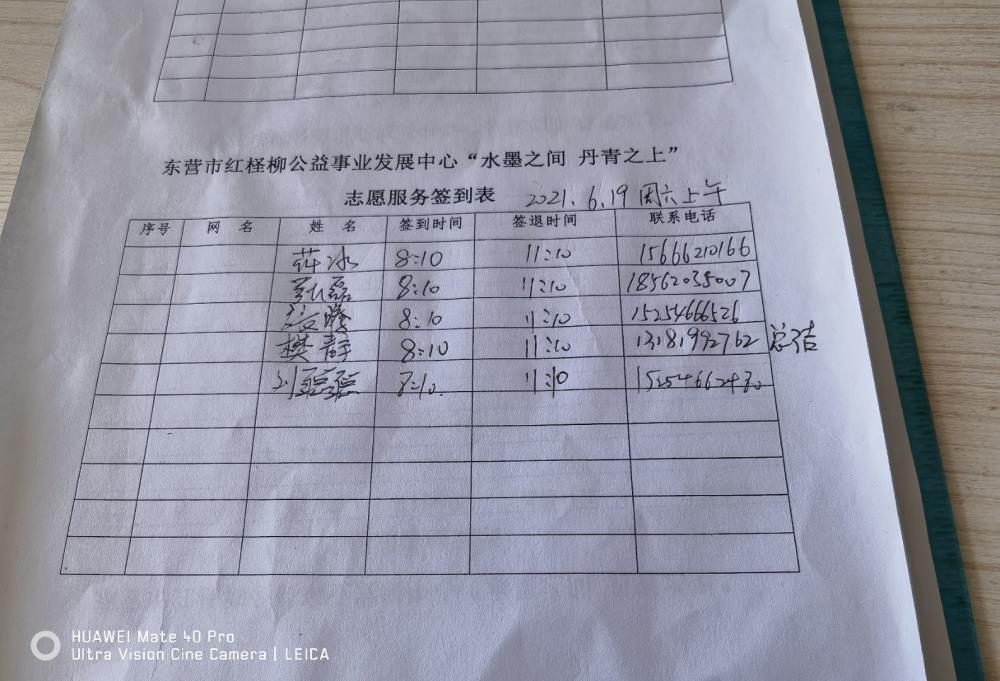 东营市红柽柳公益事业发展中心“水墨之间 丹青之上”
志愿服务签到表 2021.6.19 周六上午
序号 网 名 姓 名 签到时间 签退时间 联系电话
薛冰 8:10 11:10 15666210166
张磊 8:10 11:10 18562035007
8:10 11:10 15254666526
樊静 8:10 11:10 13181992762 总结
刘蕴蕴 8:10 11:10 15254662480
HUAWEI Mate 40 Pro
Ultra Vision Cine Camera | LEICA